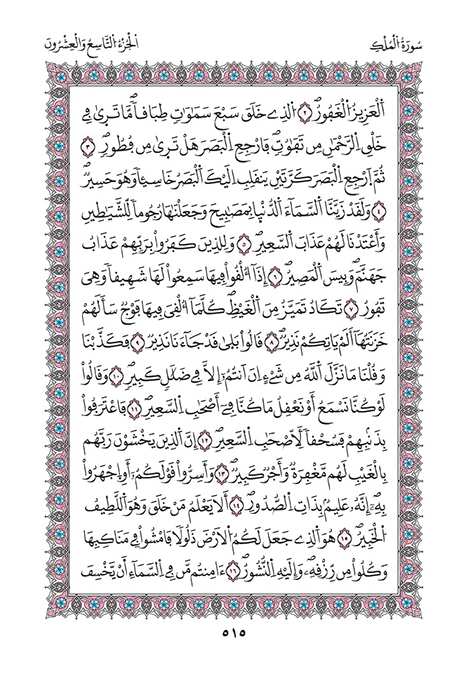 سُورَةُ الْمُلْكِ
الْجُزْءُ التَّاسِعُ وَالْعِشْرُونَ
اَلْعَزِيزُ الْغَفُورُۖ ٢ اُلذِے خَلَقَ سَبْعَ سَمَٰوَٰتٖ طِبَاقاٗۖ مَّا تَر۪يٰ فِے
خَلْقِ اِ۬لرَّحْمَٰنِ مِن تَفَٰوُتٖۖ فَارْجِعِ اِ۬لْبَصَرَ هَلْ تَر۪يٰ مِن فُطُورٖۖ ٣
ثُمَّ اَ۪رْجِعِ اِ۬لْبَصَرَ كَرَّتَيْنِ يَنقَلِبِ اِلَيْكَ اَ۬لْبَصَرُ خَاسِئاٗ وَهُوَ حَسِيرٞۖ
٤ وَلَقَدْ زَيَّنَّا اَ۬لسَّمَآءَ اَ۬لدُّنْي۪ا بِمَصَٰبِيحَ وَجَعَلْنَٰهَا رُجُوماٗ لِّلشَّيَٰطِينِ
وَأَعْتَدْنَا لَهُمْ عَذَابَ اَ۬لسَّعِيرِۖ ٥ وَلِلذِينَ كَفَرُواْ بِرَبِّهِمْ عَذَابُ
جَهَنَّمَۖ وَبِيسَ اَ۬لْمَصِيرُۖ ٦ إِذَآ أُلْقُواْ فِيهَا سَمِعُواْ لَهَا شَهِيقاٗ وَهِيَ
تَفُورُ ٧ تَكَادُ تَمَيَّزُ مِنَ اَ۬لْغَيْظِۖ كُلَّمَآ أُلْقِيَ فِيهَا فَوْجٞ سَأَلَهُمْ
خَزَنَتُهَآ أَلَمْ يَاتِكُمْ نَذِيرٞۖ ٨ قَالُواْ بَل۪يٰ قَدْ جَآءَنَا نَذِيرٞۖ ٩ فَكَذَّبْنَا
وَقُلْنَا مَا نَزَّلَ اَ۬للَّهُ مِن شَےْءٍ اِنَ اَنتُمُۥٓ إِلَّا فِے ضَلَٰلٖ كَبِيرٖۖ ١٠ وَقَالُواْ
لَوْ كُنَّا نَسْمَعُ أَوْ نَعْقِلُ مَا كُنَّا فِےٓ أَصْحَٰبِ اِ۬لسَّعِيرِۖ ١١ فَاعْتَرَفُواْ
بِذَنۢبِهِمْ فَسُحْقاٗ لِّأَصْحَٰبِ اِ۬لسَّعِيرِۖ ١٢ إِنَّ اَ۬لذِينَ يَخْشَوْنَ رَبَّهُم
بِالْغَيْبِ لَهُم مَّغْفِرَةٞ وَأَجْرٞ كَبِيرٞۖ ١٣ وَأَسِرُّواْ قَوْلَكُمُۥٓ أَوِ اِ۪جْهَرُواْ
بِهِۦٓۖ إِنَّهُۥ عَلِيمُۢ بِذَاتِ اِ۬لصُّدُورِۖ ١٤ أَلَا يَعْلَمُ مَنْ خَلَقَۖ وَهُوَ اَ۬للَّطِيفُ
اُ۬لْخَبِيرُۖ ١٥ هُوَ اَ۬لذِے جَعَلَ لَكُمُ اُ۬لَارْضَ ذَلُولاٗ فَامْشُواْ فِے مَنَاكِبِهَا
وَكُلُواْ مِن رِّزْقِهِۦۖ وَإِلَيْهِ اِ۬لنُّشُورُۖ ١٦ ءَآمِنتُم مَّن فِے اِ۬لسَّمَآءِ اَ۬نْ يَّخْسِفَ
٥١٥